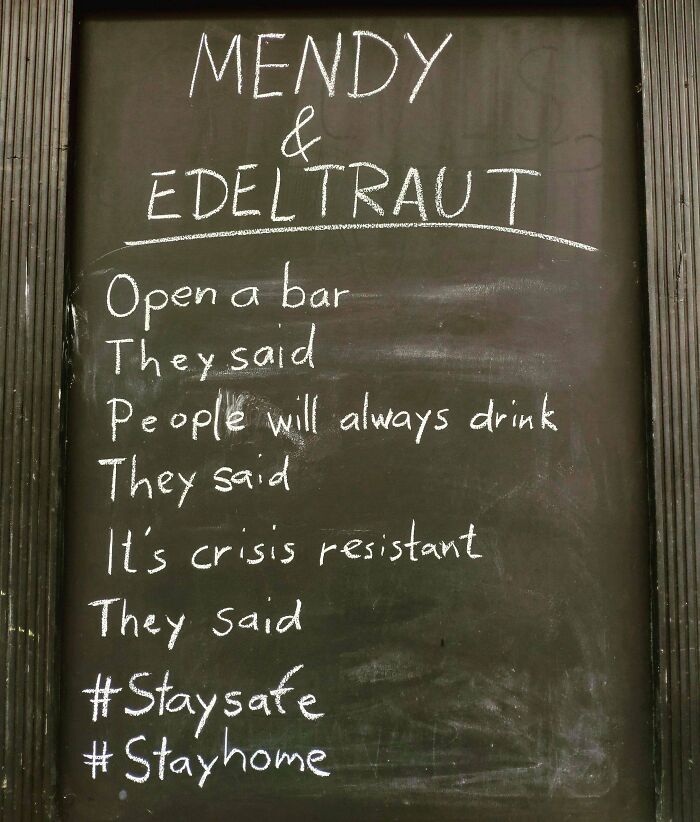 MENDY
&
EDELTRAUT
Open a bar
They said
People will always drink
They said
It's crisis resistant
They said
#Staysafe
#Stayhome